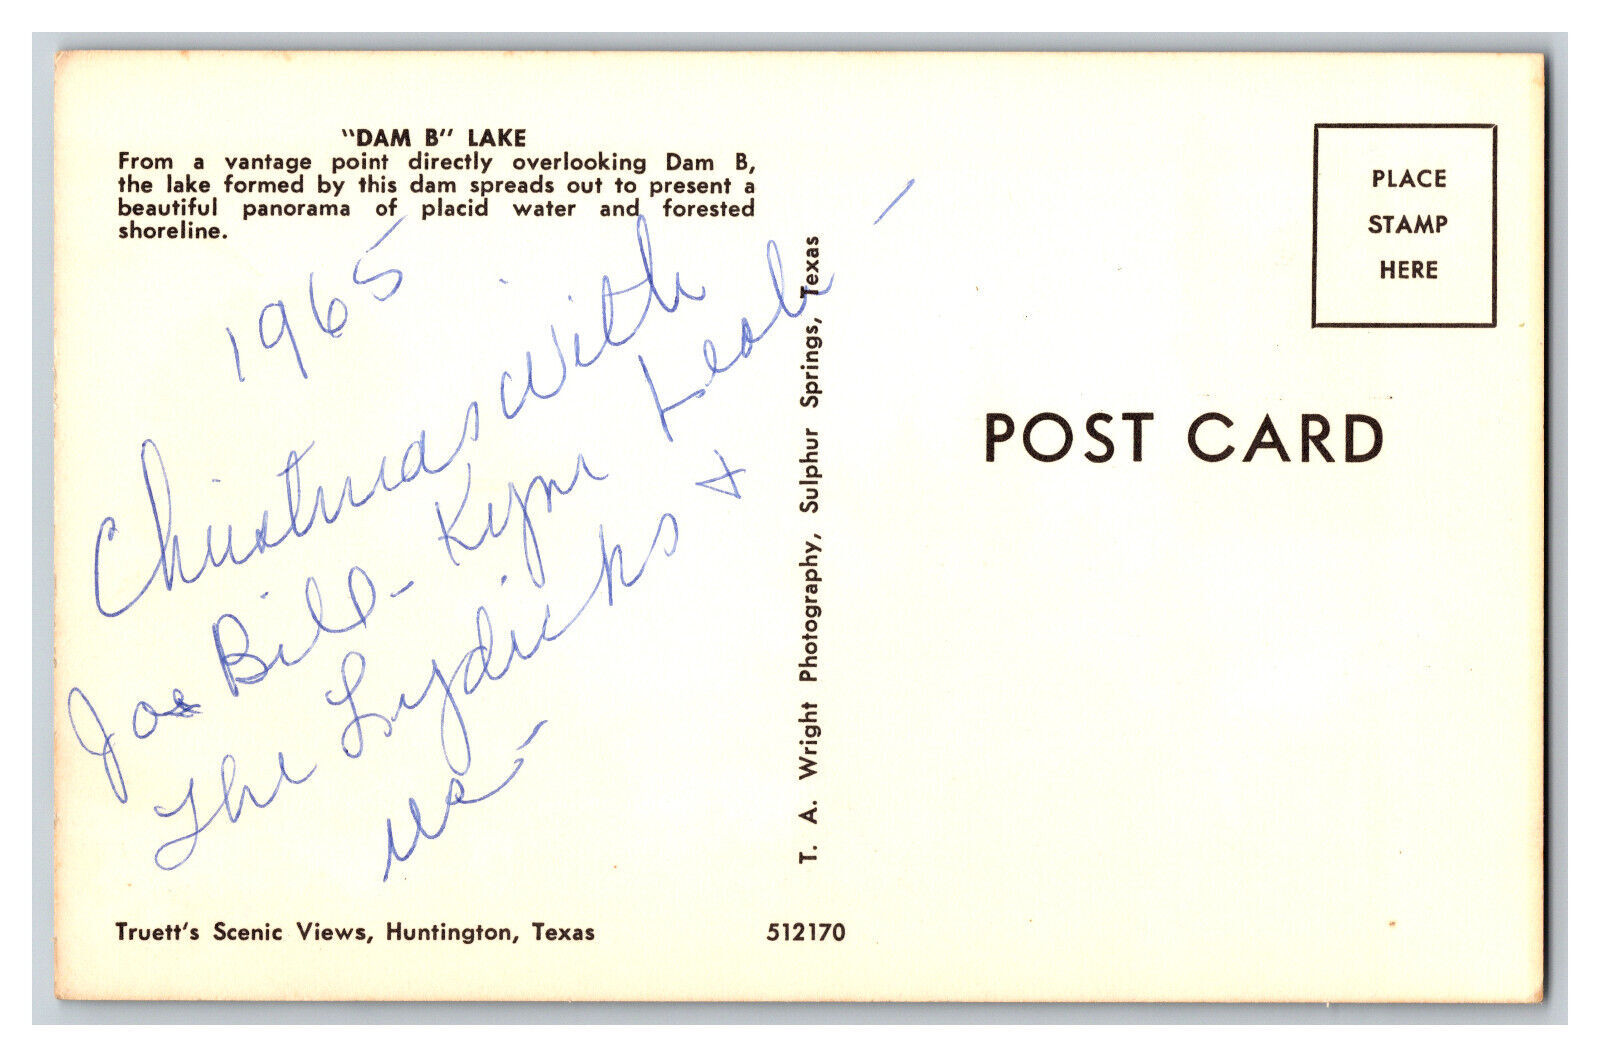 "DAM B" LAKE
From a vantage point directly overlooking Dam B,
the lake formed by this dam spreads out to present a
beautiful panorama of placid water and forested
shoreline.
1965
Christmas with
Joe Bill - Kym Leah -
The Lydicks +
us -
Truett's Scenic Views, Huntington, Texas
512170
T. A. Wright Photography, Sulphur Springs, Texas
PLACE
STAMP
HERE
POST CARD